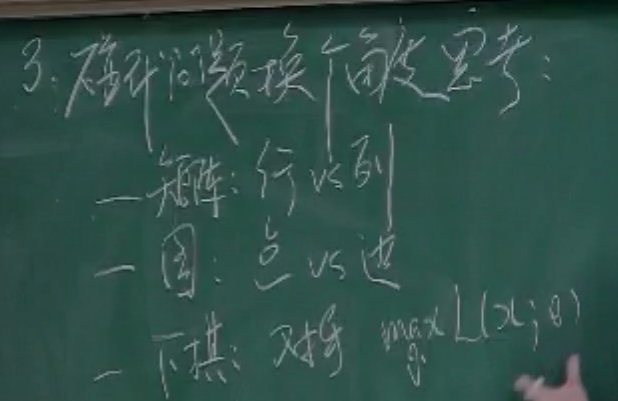 3. 碰到问题换个角度思考:
— 矩阵: 行 vs 列
— 图: 点 vs 边
— 下棋: 对手 max L(x; θ)
θ